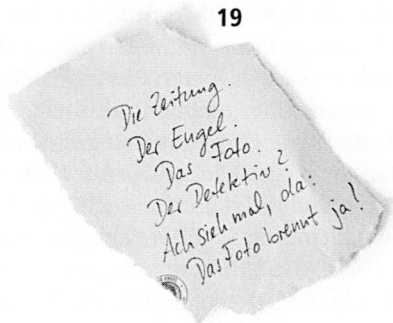 19
Die Zeitung.
Der Engel.
Das Foto.
Der Detektiv?
Ach sieh mal, da:
Das Foto brennt ja!